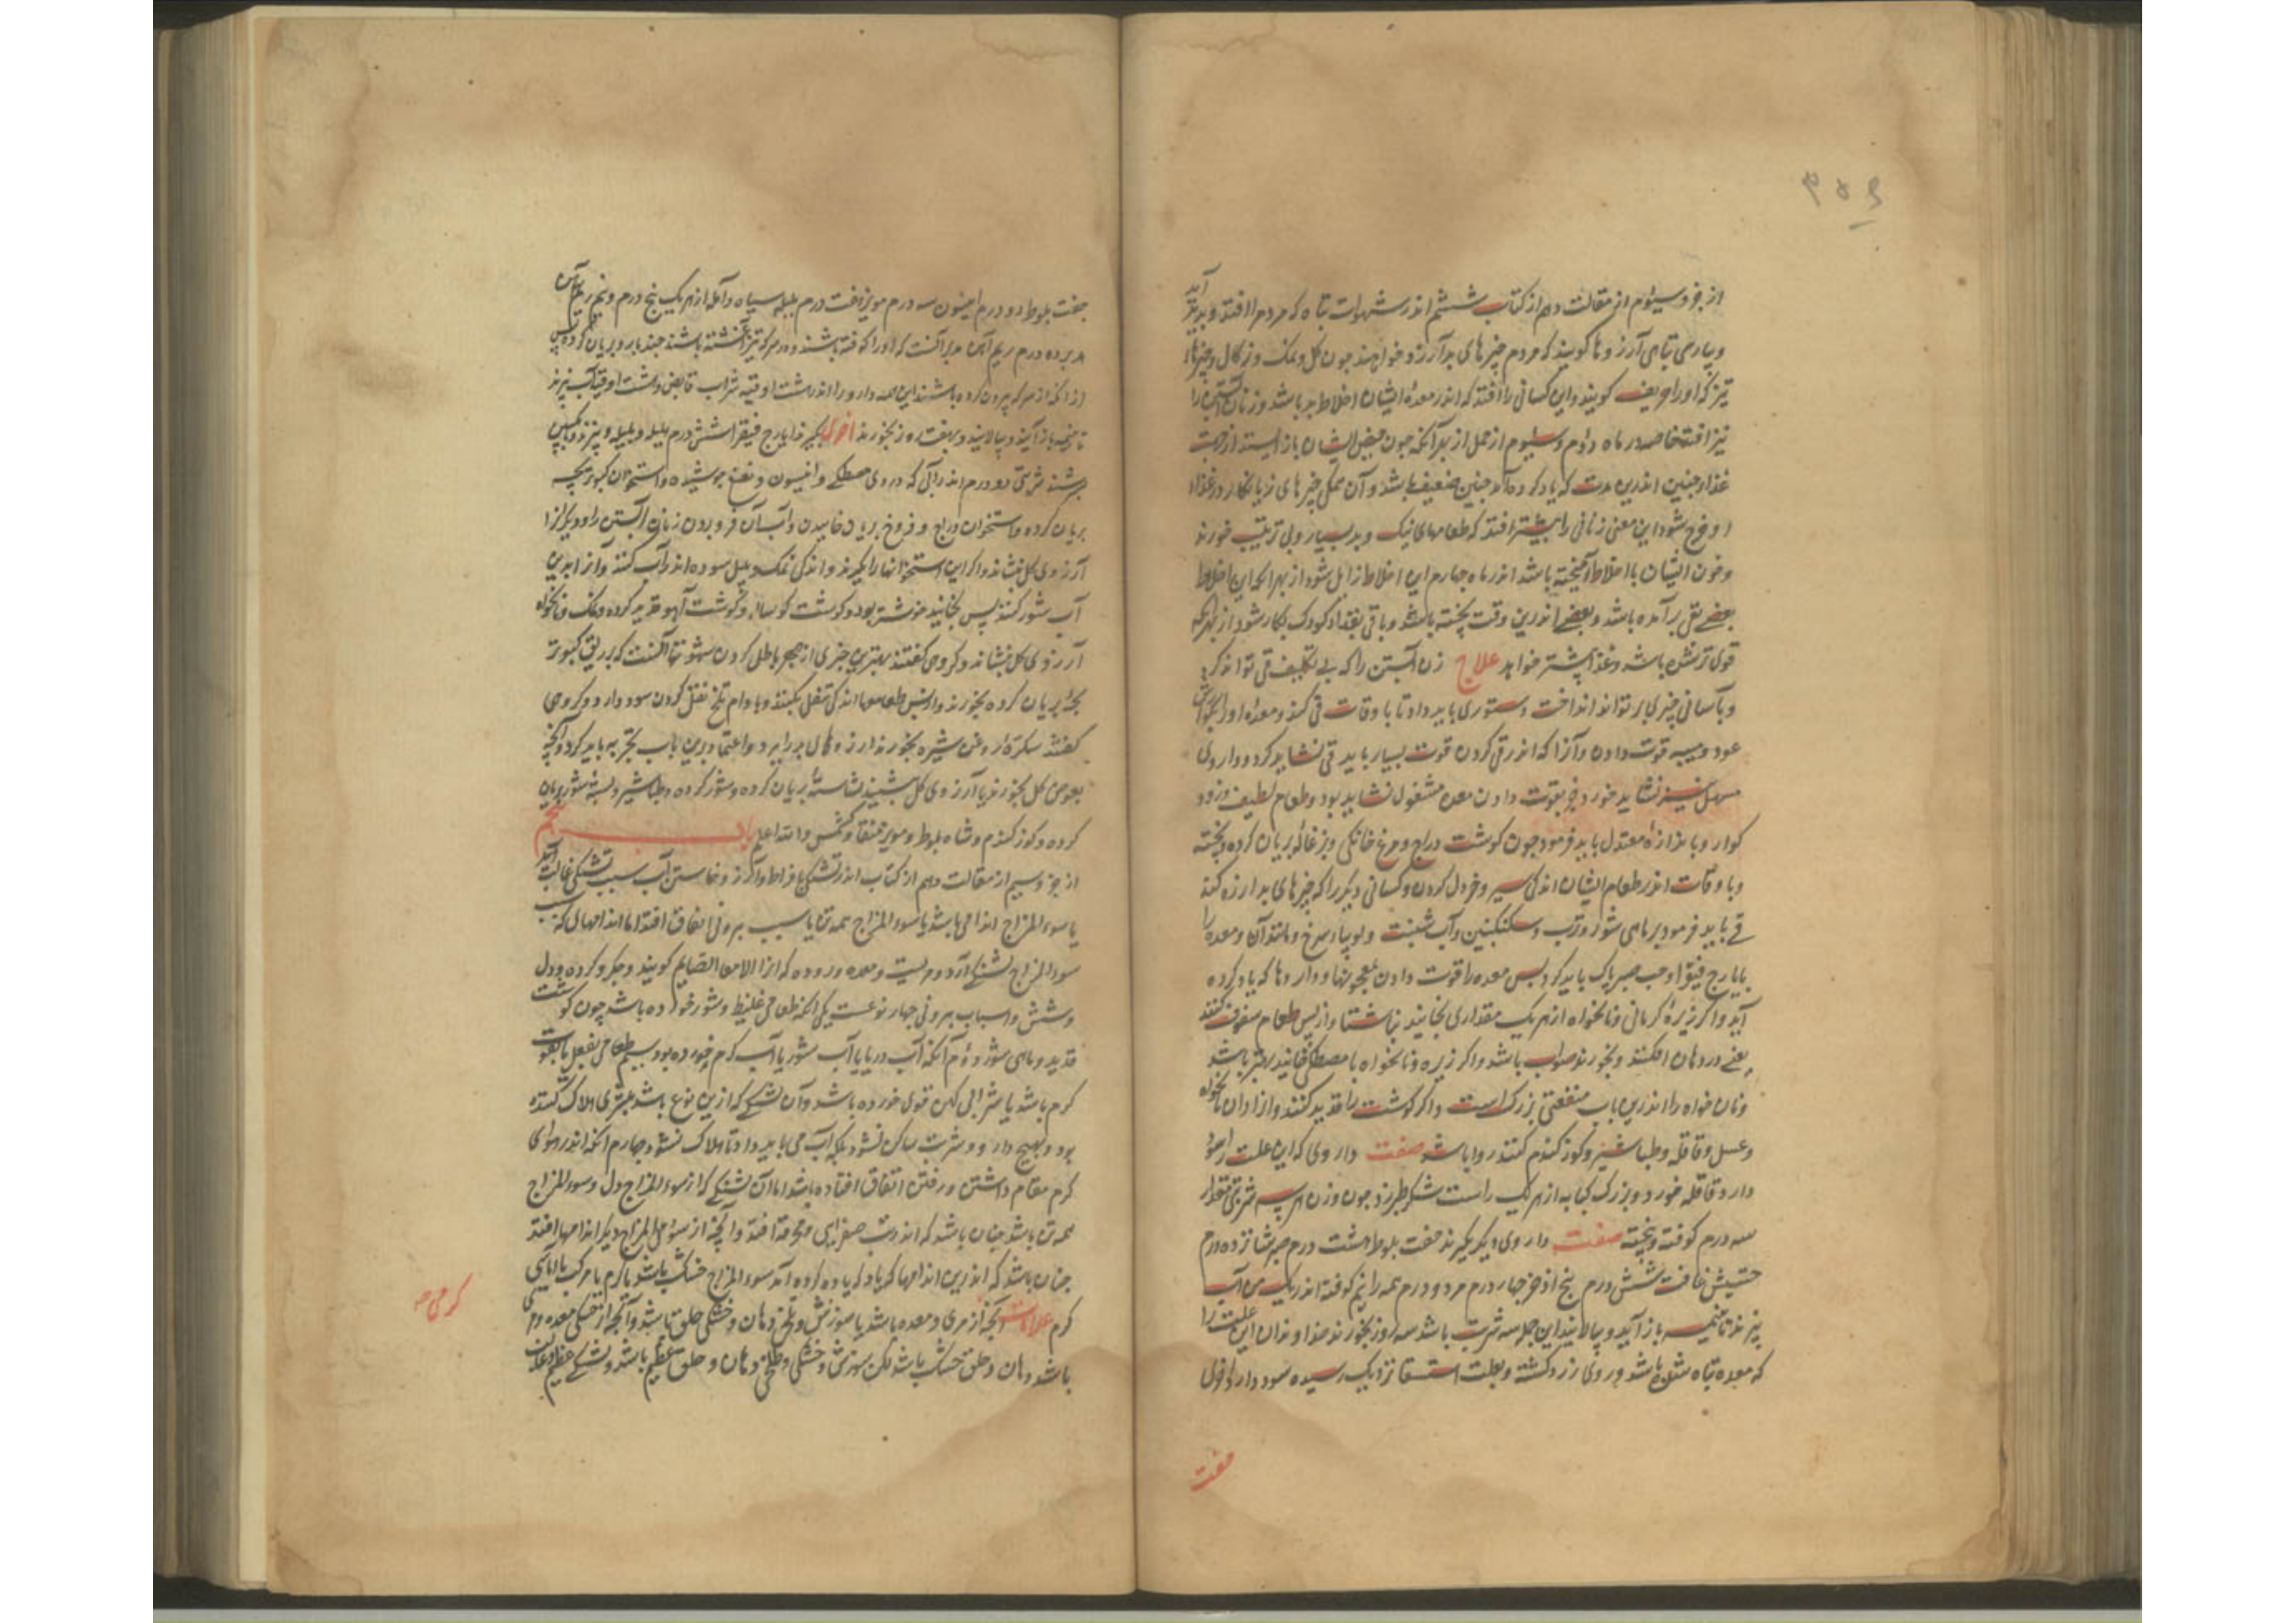 از جزو سیوم از مقالت دهم از کتاب ششم اندر شهوات تباه که مردم را افتد و بدید آید
و پارسی تباهی آرزوها کویند که مردم چیزهای بد آرزو خواهند چون کل و نمک و زکال و چیزهاء
تیز که اورا حریف کویند و این کسانی را افتد که اندر معدهٔ ایشان اخلاط بد باشد و زنان آبستن را
نیز افتد خاصه در ماه دوم و سیوم از حمل از بهر آنکه چون حیض ایشان باز ایستد از جهت
غذاء جنین اندرین مدت که یاد کرده آمد جنین ضعیف باشد و آن همکی چیزهای زیانکار در غذاء
او خرج نشود این معنی زنانی را بیشتر افتد که طعامهای نیک و بد بسیار و بی ترتیب خورند
و خون ایشان با اخلاط آمیخته باشد اندر ماه چهارم این اخلاط زایل شود از بهر انکه این اخلاط
بعضی بقی برآمده باشد و بعضی اندرین وقت پخته باشد و باقی بغذاء کودک بکار شود از بهر آنکه
قوی تر شده باشد و غذا بیشتر خواهد علاج زن آبستن را که بی تکلیف قی تواند کرد
و بآسانی چیزی بر تواند انداخت دستوری باید داد تا باوقات قی کند و معدهٔ او را بجوارش
عود و میبه قوت دادن و آنرا که اندر قی کردن قوت بسیار باید قی نشاید کرد و داروی
مسهل نیز نشاید خورد جز بقوت دادن معده مشغول نشاید بود و طعام لطیف و زود
کوار و با اندازهٔ معتدل باید فرمود چون کوشت دراج و مرغ خانکی و بزغاله بریان کرده و پخته
و باوقات اندر طعام ایشان اندکی سیر و خردل کردن و کسانی دیکر را که چیزهای بد ارزو کند
قی باید فرمود بر ماهی شور و ترب و سکنکبین و آب شبت و لوبیاء سرخ و مانند آن و معده را
بایارج فیقرا و حب صبر پاک باید کرد پس معده را قوت دادن بمعجونها و داروها که یاد کرده
آید و اکر زیرهٔ کرمانی و نانخواه از هر یک مقداری بخایند ناشتا و از پس طعام سفوف کنند
یعنی در دهان افکنند و بخورند صواب باشد و اکر زیره و نانخواه با مصطکی خایند بهتر باشد
و نان خواه را اندرین باب منفعتی بزرک است و اکر کوشت را قدید کنند و ازادان نانخواه
و عسل و قاقله و طباشیر و کوز کندم کنند روا باشد صفت داروی که این علت را سود
دارد قاقله خورد و بزرک کبابه از هر یک راست شکر طبرزد چون وزن هر سه شربتی مقدار
سه درم کوفته و بیخته صفت داروی دیکر بکیرند جفت بلوط هشت درم صبر شانزده درم
حشیش غافت شش درم بیخ اذخر چهار درم مر دو درم همه را نیم کوفته اندر یک من آب
بپزند تا بنیمه باز آید و بپالایند این جمله سه شربت باشد سه روز بخورند خداوندان این علت را
که معده تباه شده باشد و روی زرد کشته و بعلت استسقا نزدیک رسیده سود دارد
صفت
جفت بلوط دو درم انیسون سه درم مویز هفت درم هلیله سیاه و آمله از هر یک پنج درم و نیم ریم آهن
مدبر ده درم ریم آهن مدبر آنست که اورا کوفته باشند و در سرکه تیز آغشته باشند چند بار و بریان کرده پس
از انکه از سرکه بیرون کرده باشند این همه دارو را اندر هشت اوقیه شراب قابض و هشت اوقیه آب بپزند
تا بنیمه باز آید و بپالایند و بهفت روز بخورند اخری بکیرند ایارج فیقرا شش درم هلیله و بلیله و بپزند و بانکبین
بسرشند شربتی دو درم اندر آبی که در وی مصطکی و انیسون و نعنع جوشیده و استخوان کبوتر بچه
بریان کرده و استخوان دراج و فروخ بریان خاییدن و آب آن فرو بردن زنان آبستن را و دیکرانرا
آرزوی کل بنشاند و اکر این استخوانها را بکیرند و اندکی نمک و پلپل سوده اندر آب کنند و از ابدین
آب شور کنند پس بخایند خوشتر بود و کوشت کوساله و کوشت آهو قدید کرده و نمک و نانخواه
آرزوی کل بنشاند و کروهی کفتند بهترین چیزی از بهر باطل کردن شهوتها آنست که بر ریق کبوتر
بچهٔ بریان کرده بخورند و از پس طعامها اندکی تنقل بکنند و بادام تلخ نقل کردن سود دارد و کروهی
کفتند سکرهٔ از روغن شیره بخورند ارزوهای بد را ببرد و اعتماد برین باب بتجربه باید کرد و آنچه
بعوض کل بخورند تا آرزوی کل بنشیند نشاستهٔ بریان کرده و شور کرده و طباشیر و پسته شور بریان
کرده و کوز کندم و شاه بلوط و مویز منقا و کشمش والله اعلم باب پنجم
از جزو سیم از مقالت دهم از کتاب اندر تشنکی بافراط و آرزو خاستن آب سبب تشنکی غالب آید
یا سوء المزاج اندامی باشد یا سوء المزاج همه تن یا سبب بیرونی اتفاق افتد اما اندامهای که سبب
سوء المزاج تشنکی آرد مریست و معده و روده که انرا الامعاء الصایم کویند و جکر و کرده و دل
و شش و اسباب بیرونی چهار نوعست یکی انکه طعامی غلیظ و شور خورده باشد چون کوشت
قدید و ماهی شور دوم آنکه آب دریا یا آب شور یا آب کرم خورده بود سیم طعامی بفعل یا بقوت
کرم باشد یا شرابی کهن قوی خورده باشد و آن تشنکی که ازین نوع باشد بیشتری هلاک کننده
بود و بهیچ دارو و شربت ساکن نشود بلکه آب می باید داد تا هلاک نشود چهارم انکه اندر هوای
کرم مقام داشتن و رفتن اتفاق افتاده باشد اما آن تشنکی که از سوء المزاج دل و سوء المزاج
همه تن باشد چنان باشد که اندر تب صفرایی و محرقه افتد و آنچه از سوء المزاج دیکر اندامها افتد
چنان باشد که اندرین اندامها که یاد کرده آمد سوء المزاج خشک باشد یا کرم یا مرکب یا آماسی
کرم علامات آنچه از مری و معده باشد با سوزش و تلخی دهان و خشکی حلق باشد و آنچه از خشکی معده و مری
باشد دهان و حلق خشک باشد لکن سوزش و خشکی و تلخی دهان و حلق عظیم باشد و تشنکی عظیم